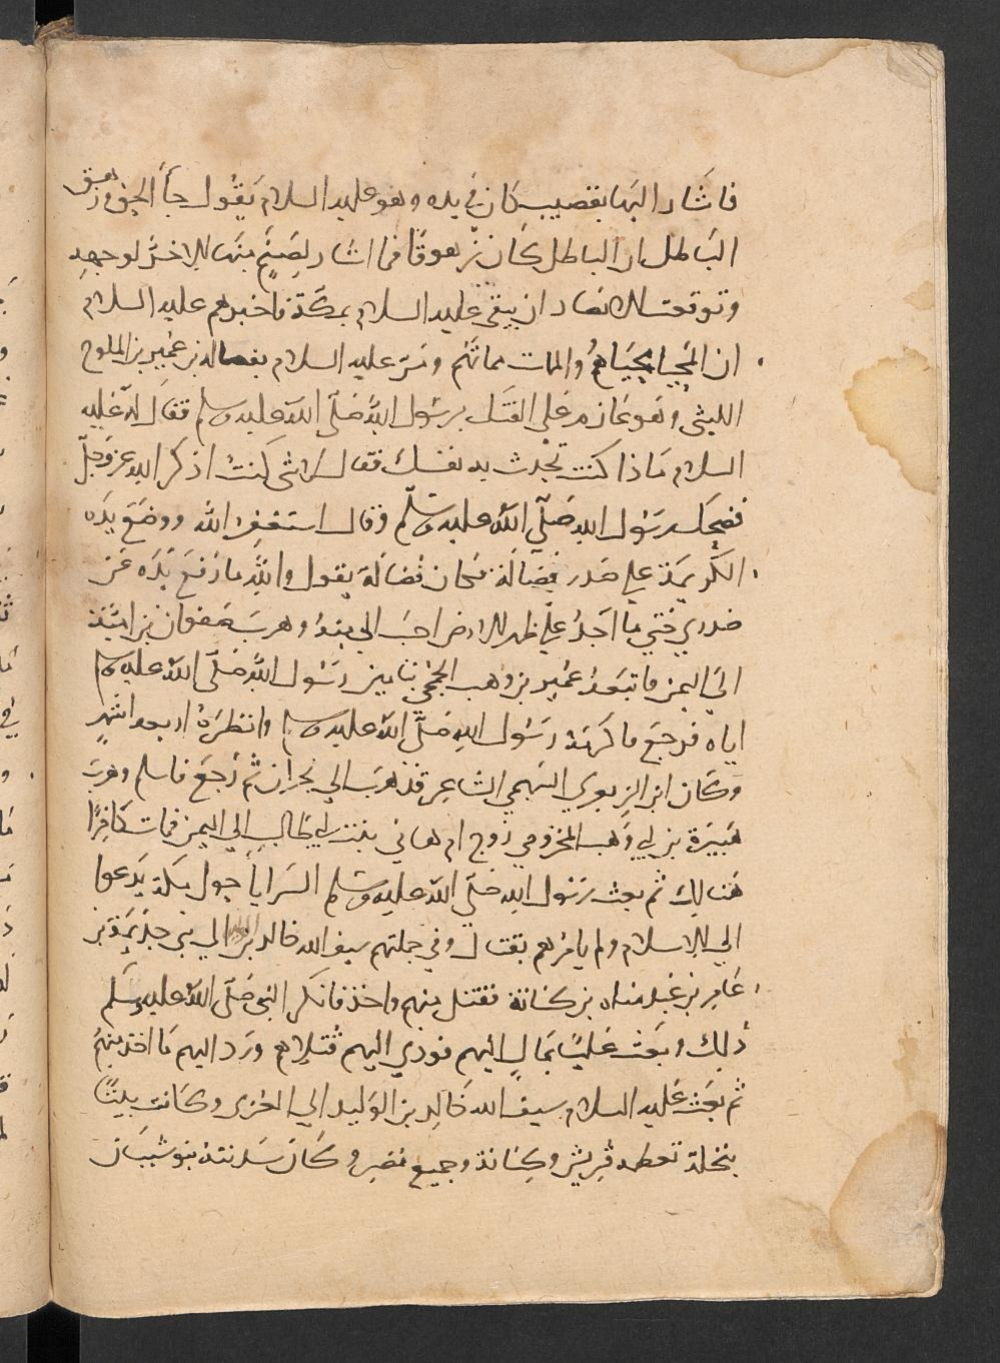 فاشار اليها بقضيب كان في يده وهو عليه السلام يقول جاء الحق وزهق
الباطل ان الباطل كان زهوقا فما اشار لصنم منها الا خر لوجهه
وتوقعت الانصار ان يبقى عليه السلام بمكة فاخبرهم عليه السلام
ان المحيا محياهم والممات مماتهم ومر عليه السلام بفضالة بن عمير بن الملوح
الليثي وهو عازم على الفتك برسول الله صلى الله عليه وسلم فقال له عليه
السلام ماذا كنت تحدث به نفسك فقال لا شي كنت اذكر الله عز وجل
فضحك رسول الله صلى الله عليه وسلم وقال استغفر الله ووضع يده
الكريمة على صدر فضالة فكان فضالة يقول والله ما رفع يده عن
صدري حتى ما اجد على ظهر الارض احب الي منه وهرب صفوان بن امية
الى اليمن فاتبعه عمير بن وهب الجمحي بتامين رسول الله صلى الله عليه وسلم
اياه فرجع فاكرمه رسول الله صلى الله عليه وسلم وانظره اربعة اشهر
وكان ابن الزبعري السهمي الشاعر قد هرب الي نجران ثم رجع فاسلم وهرب
هبيرة بن ابي وهب المخزومي زوج ام هاني بنت ابي طالب الي اليمن فمات كافرا
هنالك ثم بعث رسول الله صلى الله عليه وسلم السرايا حول مكة يدعوا
الي الاسلام ولم يامرهم بقتال وفي جملتهم سيف الله خالد بن الوليد الي بني جذيمة بن
عامر بن عبد مناه بن كنانة فقتل منهم واخذ فانكر النبي صلى الله عليه وسلم
ذلك وبعث عليا بمال اليهم فودي اليهم قتلاهم ورد اليهم ما اخذ منهم
ثم بعث عليه السلام سيف الله خالد بن الوليد الي العزى وكانت بيتا
بنخلة تعظمه قريش وكنانة وجميع مضر وكان سدنته بنو شيبان